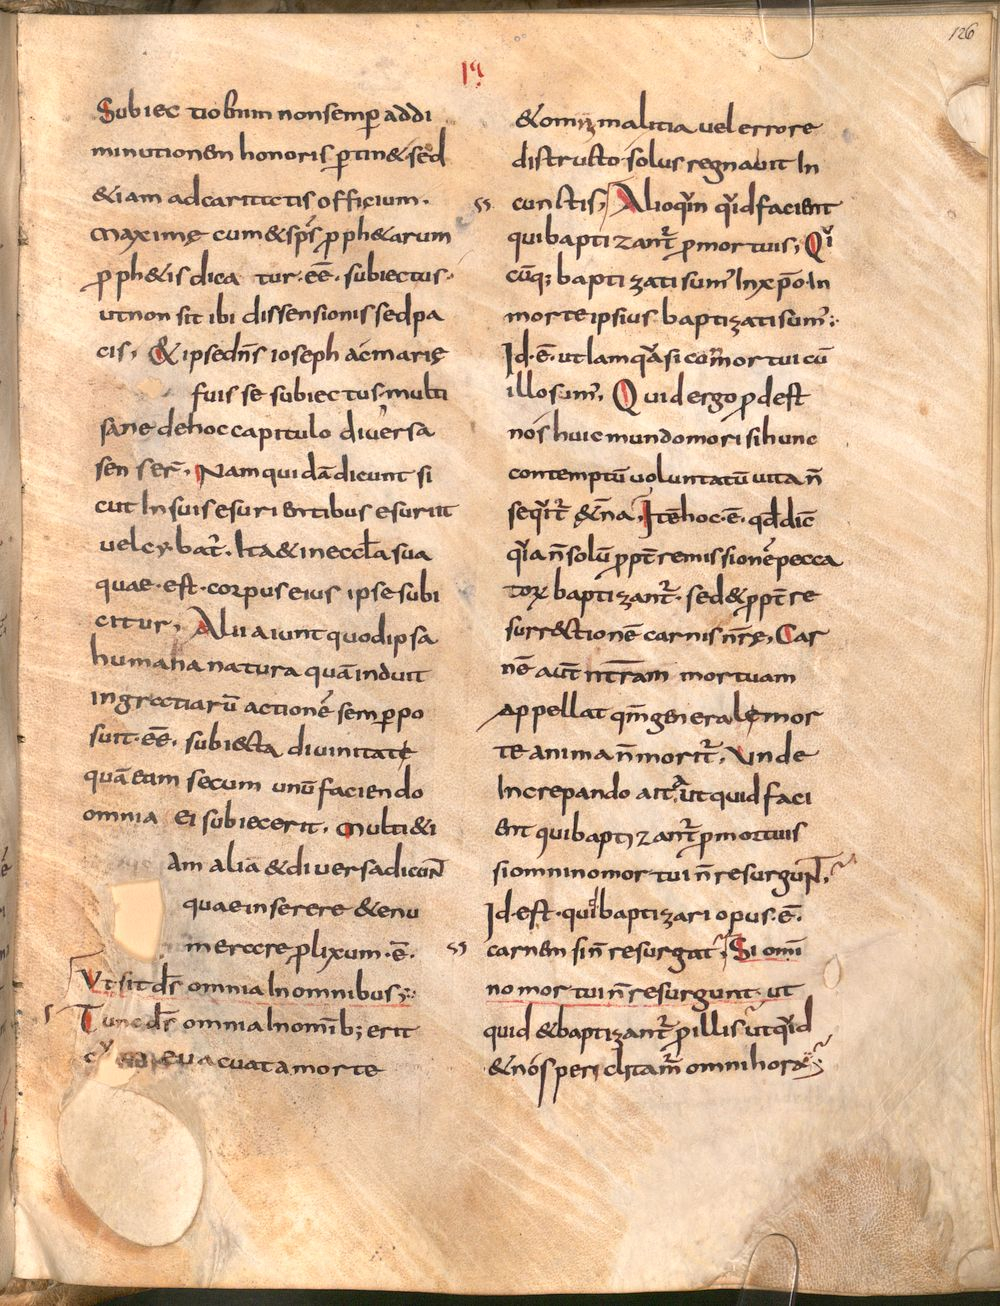 126
Subiec tio bonum non semp addi
minutionem honoris ptin& sed
&iam ad caritatis officium·
Maxime cum & sps pph&arum
pph&is dica tur·ēē· subiectus·
ut non sit ibi dissensionis sed pa
cis, & ipse dns ioseph ac marie
fuis se subiec tus· multi
sane de hoc capitulo diversa
sen ser̄, Nam quidā dicunt si
cut In suis esuri entibus esuriit
vel cy·bat̄· Ita & in eccła sua
quae·est·corpus eius ipse subi
citur, Alii aiunt quod ipsa
humana natura quā induit
in gratiarū actionē semp po
suit·ēē· subiecta divinitate
quā eam secum unū faciendo
omnia ei subiecerit, Multi &i
Am aliā & diversa dicuN̄
quae inserere & enu
merare plixum·ē·
Ut sit ds omnia In omnibus;
Tunc ds omnia In omīb; erit
evacuata morte
& omni malitia vel errore
distructo solus regnavit In
cunctis, Alioqin qid facient
qui bapti zant̄ p mor tuis, Qi
cūq; bapti zati sum' In xpo In
morte ipsius baptizati sum'·
Id·ē· ut Iam qasi cōmor tui cū
illo sum', Quid ergo pdest
nos huic mundo mori si hunc
contemptū voluntatū vita n̄
seqit̄ &n̄a, Itē hoc·ē· qd dic̄
qia n̄ solū ppt̄ remissionē pecca
torx baptizant̄· sed & ppt̄ re
surrectionē carnis nr̄e, Car
nē aut̄ nt̄ram mortuam
Appellat qm̄ generale mor
te anima n̄ morit̄, Unde
Increpando ait; ut quid faci
ent qui bapti zant̄ p mortuis
si omnino mor tui n̄ resurguN̄,
Id·est·quid baptizari opus·ē·
carnem si n̄ resurgat, Si omī
no mor tui n̄ resurgunt; ut
quid & baptizant̄ p illis ut qid
& nos peri clitam̄ omni hora;